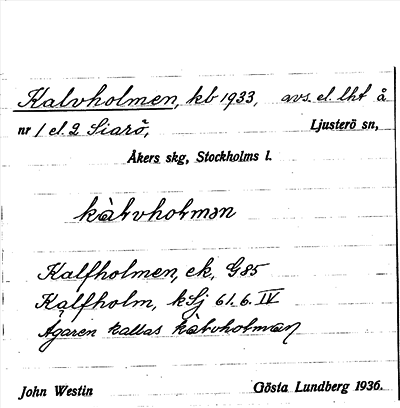 Kalvholmen, kb 1933, avs. el. lht å
nr 1 el. 2 Siarö, Ljusterö sn,
Åkers skg, Stockholms l.
kàlvholmən
Kalfholmen, ek, G85
Kalfholm, kSj 61.6.IV
Ägaren kallas kàlvholmən
John Westin Gösta Lundberg 1936.